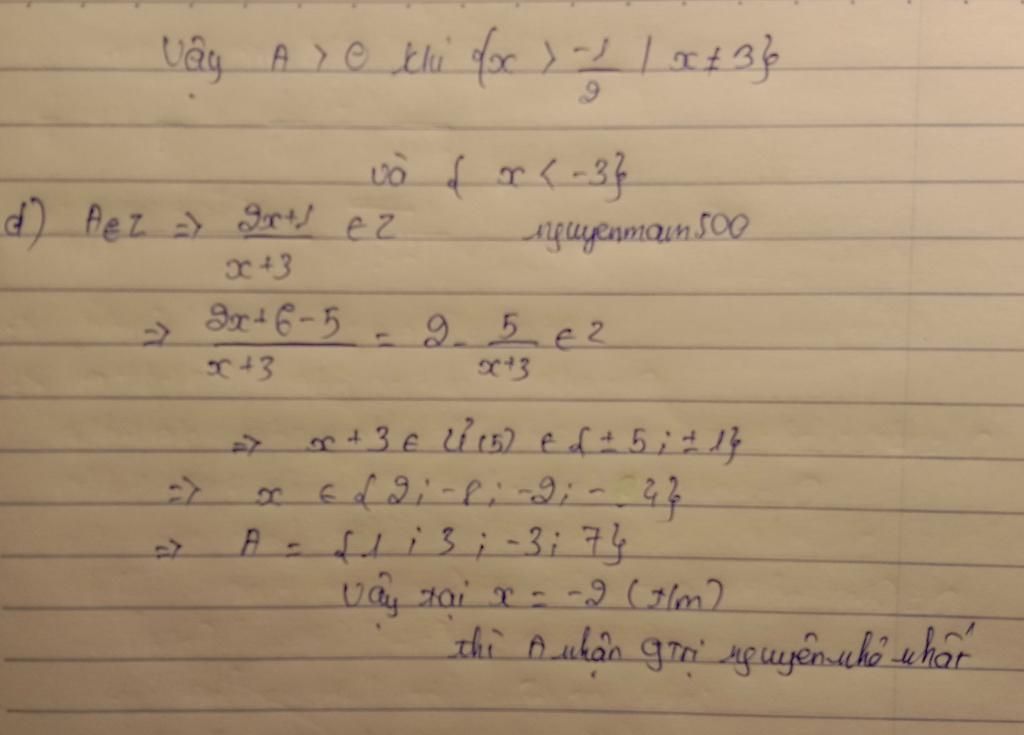 Vậy A > 0 khi {x > -1/2 | x ≠ 3}
và { x < -3}
d) A ∈ Z => 2x+1/x+3 ∈ Z nguyenmam500
=> 2x+6-5/x+3 = 2 - 5/x+3 ∈ Z
=> x + 3 ∈ Ư(5) ∈ {±5; ±1}
=> x ∈ {2; -8; -2; -4}
=> A = {1; 3; -3; 7}
Vậy tại x = -2 (t/m)
thì A nhận g trị nguyên nhỏ nhất